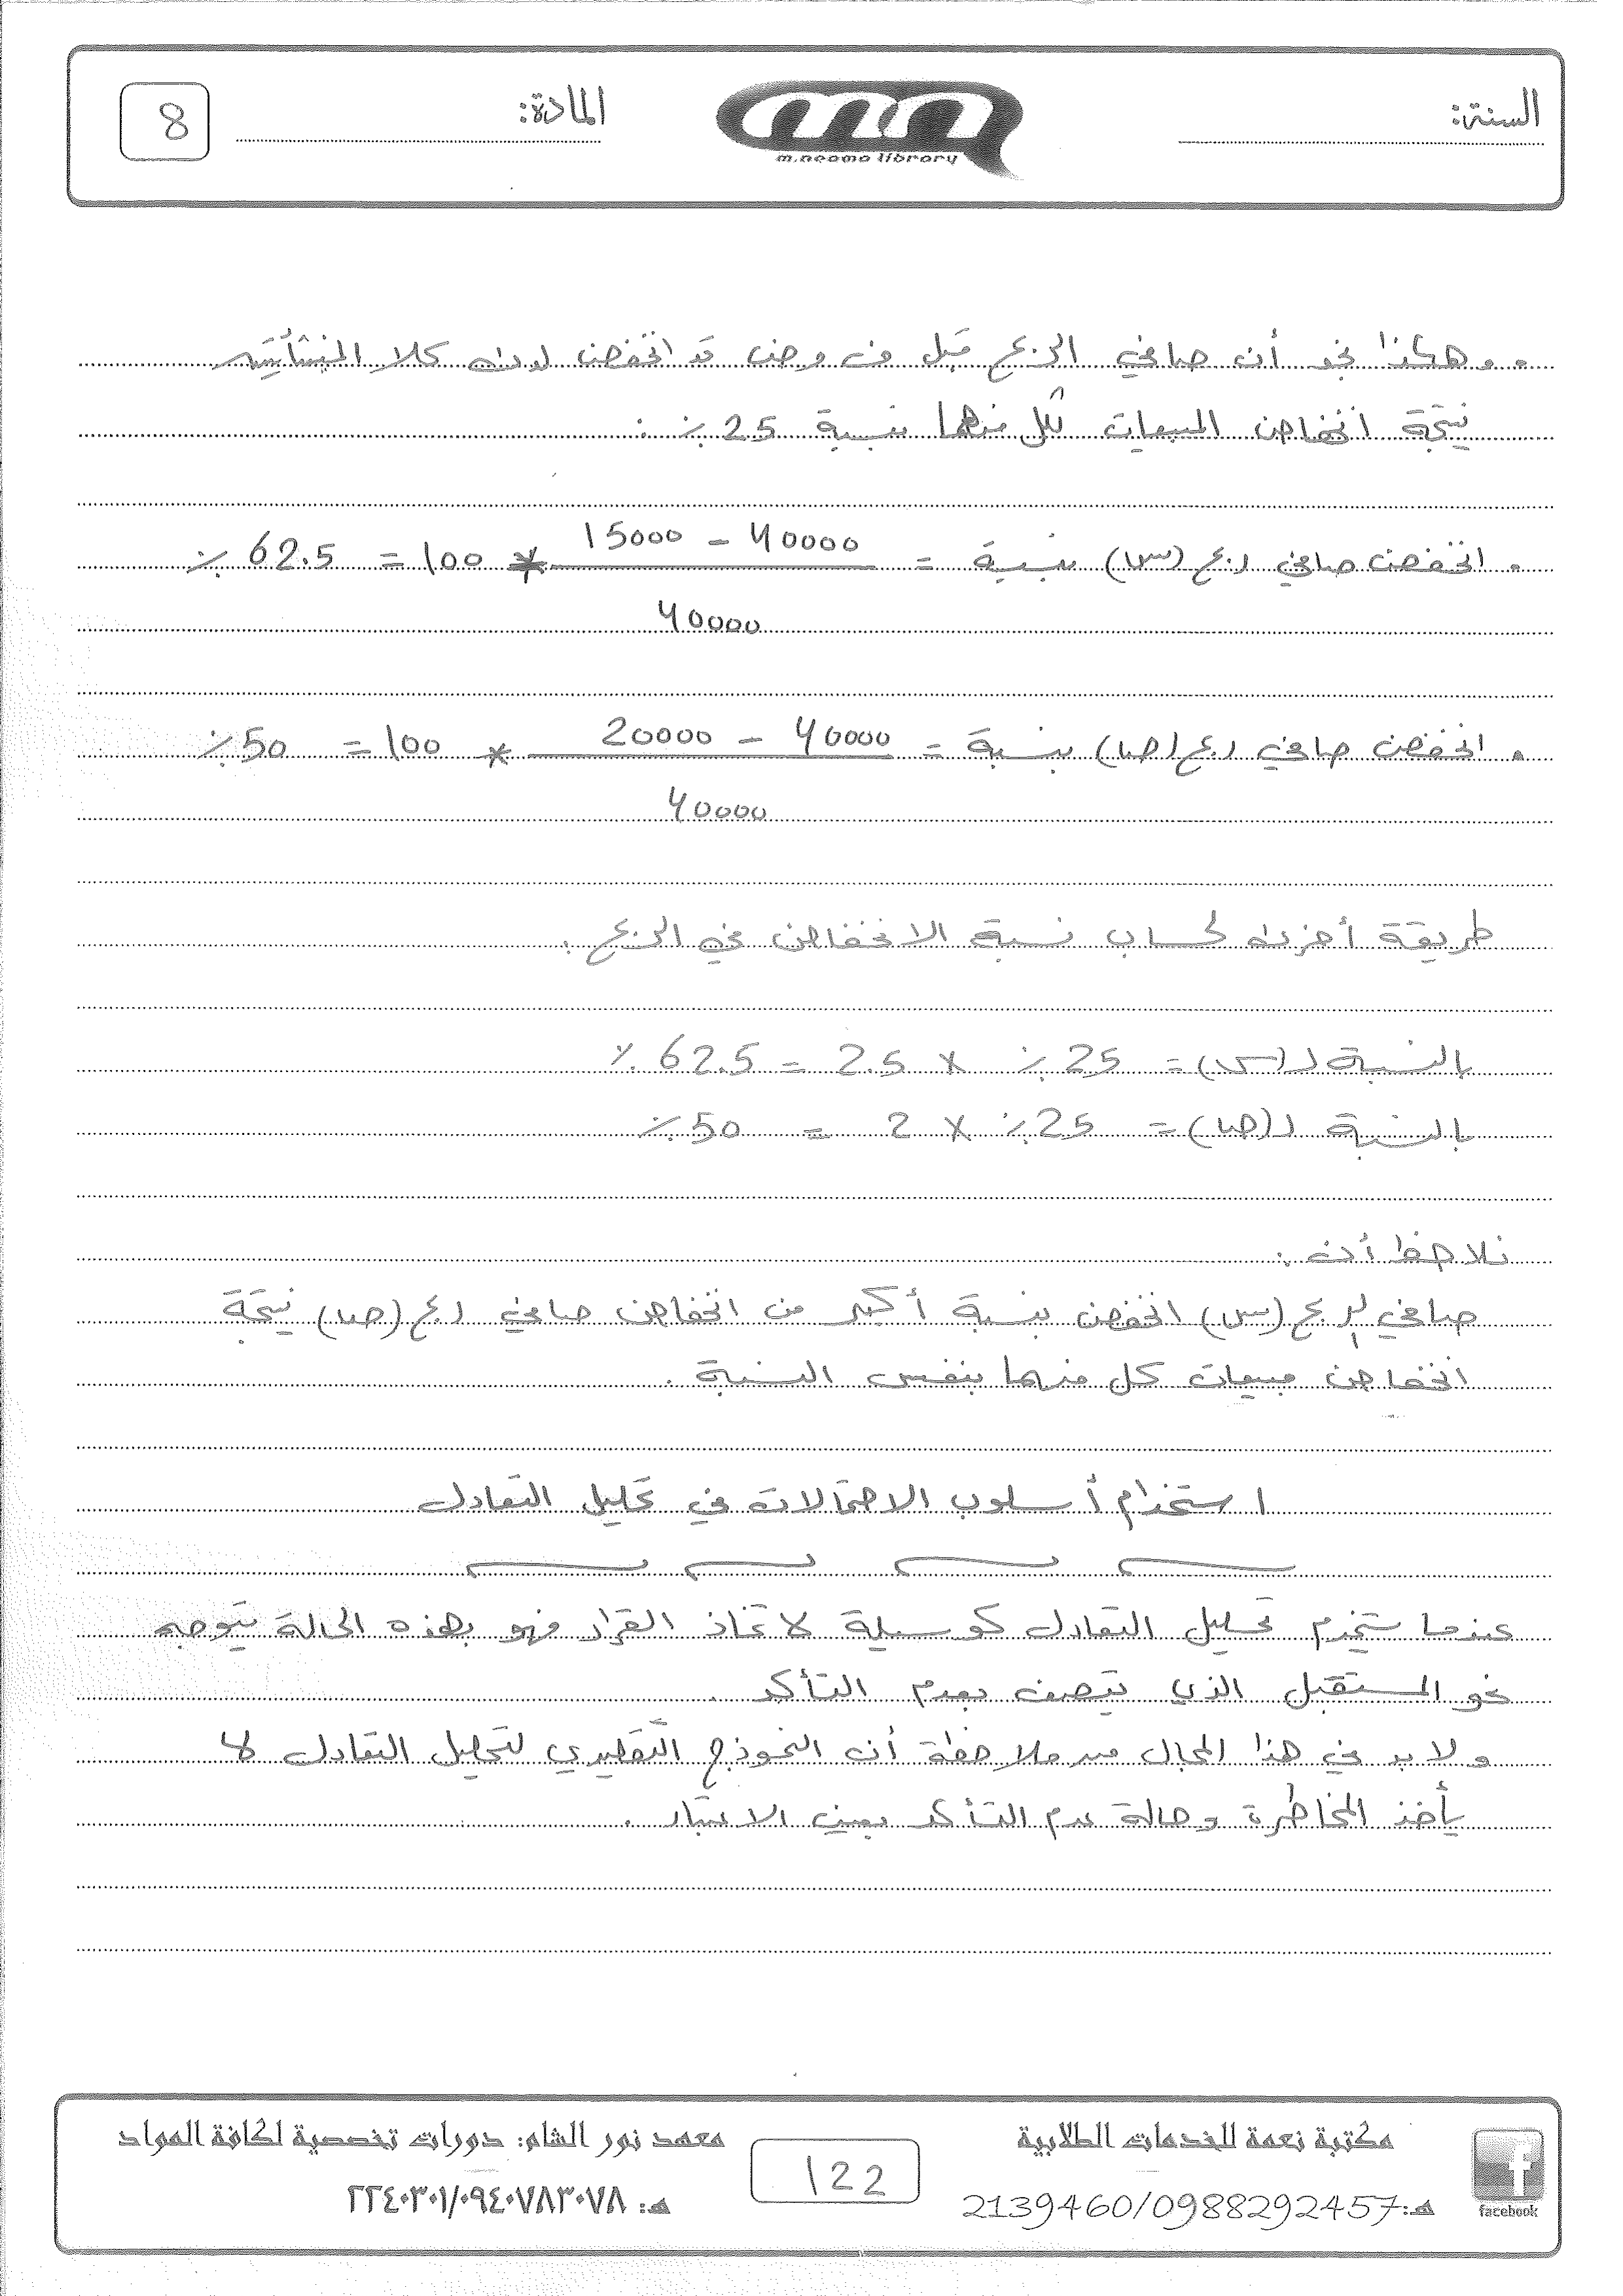 السنة:
m.neama library
المادة:
8
• وهكذا نجد أن صافي الربح قبل ف وض قد انخفض لدى كلا المنشأتين
نتيجة انخفاض المبيعات لكل منهما بنسبة 25 ٪ :
• انخفض صافي ربح (س) بنسبة = 40000 - 15000 * 100 = 62.5 ٪
40000
• انخفض صافي ربح (ص) بنسبة = 40000 - 20000 * 100 = 50 ٪
40000
طريقة أخرى لحساب نسبة الانخفاض في الربح :
بالنسبة لـ (س) = 25 ٪ × 2.5 = 62.5 ٪
بالنسبة لـ (ص) = 25 ٪ × 2 = 50 ٪
نلاحظ أن :
صافي ربح (س) انخفض بنسبة أكبر من انخفاض صافي ربح (ص) نتيجة
انخفاض مبيعات كل منهما بنفس النسبة .
استخدام أسلوب الاحتمالات في تحليل التعادل
عندما يستخدم تحليل التعادل كوسيلة لاتخاذ القرار فهو بهذه الحالة يتوجه
نحو المستقبل الذي يتصف بعدم التأكد .
ولا بد في هذا المجال من ملاحظة أن النموذج التقليدي لتحليل التعادل لا
يأخذ المخاطرة وحالة عدم التأكد بعين الاعتبار .
مكتبة نعمة للخدمات الطلابية
هـ:2139460/0988292457
facebook
122
معهد نور الشام: دورات تخصصية لكافة المواد
هـ: ٢٢٤٠٣٠١/٠٩٤٠٧٨٣٠٧٨